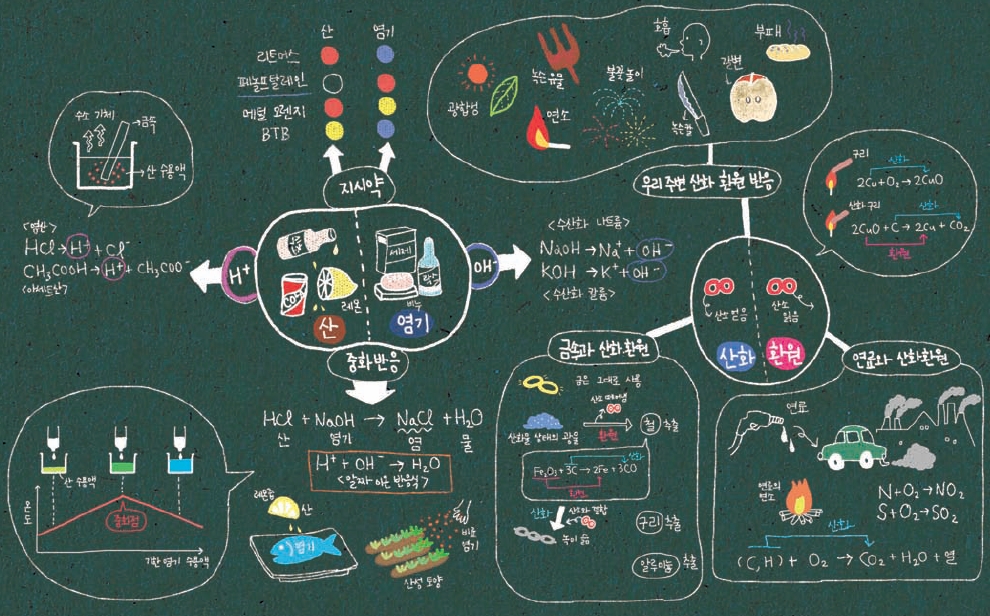 산 염기
리트머스
페놀프탈레인
메틸 오렌지
BTB
지시약
수소 기체
금속
산 수용액
<염산>
HCl → H⁺ + Cl⁻
CH₃COOH → H⁺ + CH₃COO⁻
<아세트산>
H⁺
COLA
레몬
산
세제
비누
염기
OH⁻
<수산화 나트륨>
NaOH → Na⁺ + OH⁻
KOH → K⁺ + OH⁻
<수산화 칼륨>
중화 반응
HCl + NaOH → NaCl + H₂O
산 염기 염 물
H⁺ + OH⁻ → H₂O
<알짜 이온 반응식>
레몬즙
산
염기
비료
염기
산성 토양
산 수용액
온도
중화점
가한 염기 수용액
광합성
녹슨 유물
연소
불꽃놀이
호흡
녹슨 칼
부패
갈변
우리 주변 산화 환원 반응
구리
산화
2Cu + O₂ → 2CuO
산화 구리
산화
2CuO + C → 2Cu + CO₂
환원
산소 얻음
산소
잃음
산화
환원
금속과 산화 환원
금은 그대로 사용
산소 떼어냄
산화물 상태의 광물
환원
철 추출
산화
Fe₂O₃ + 3C → 2Fe + 3CO
환원
산화
산소와 결합
녹이 슮
구리 추출
알루미늄 추출
연료와 산화 환원
연료
연료의
연소
N + O₂ → NO₂
S + O₂ → SO₂
산화
(C, H) + O₂ → CO₂ + H₂O + 열